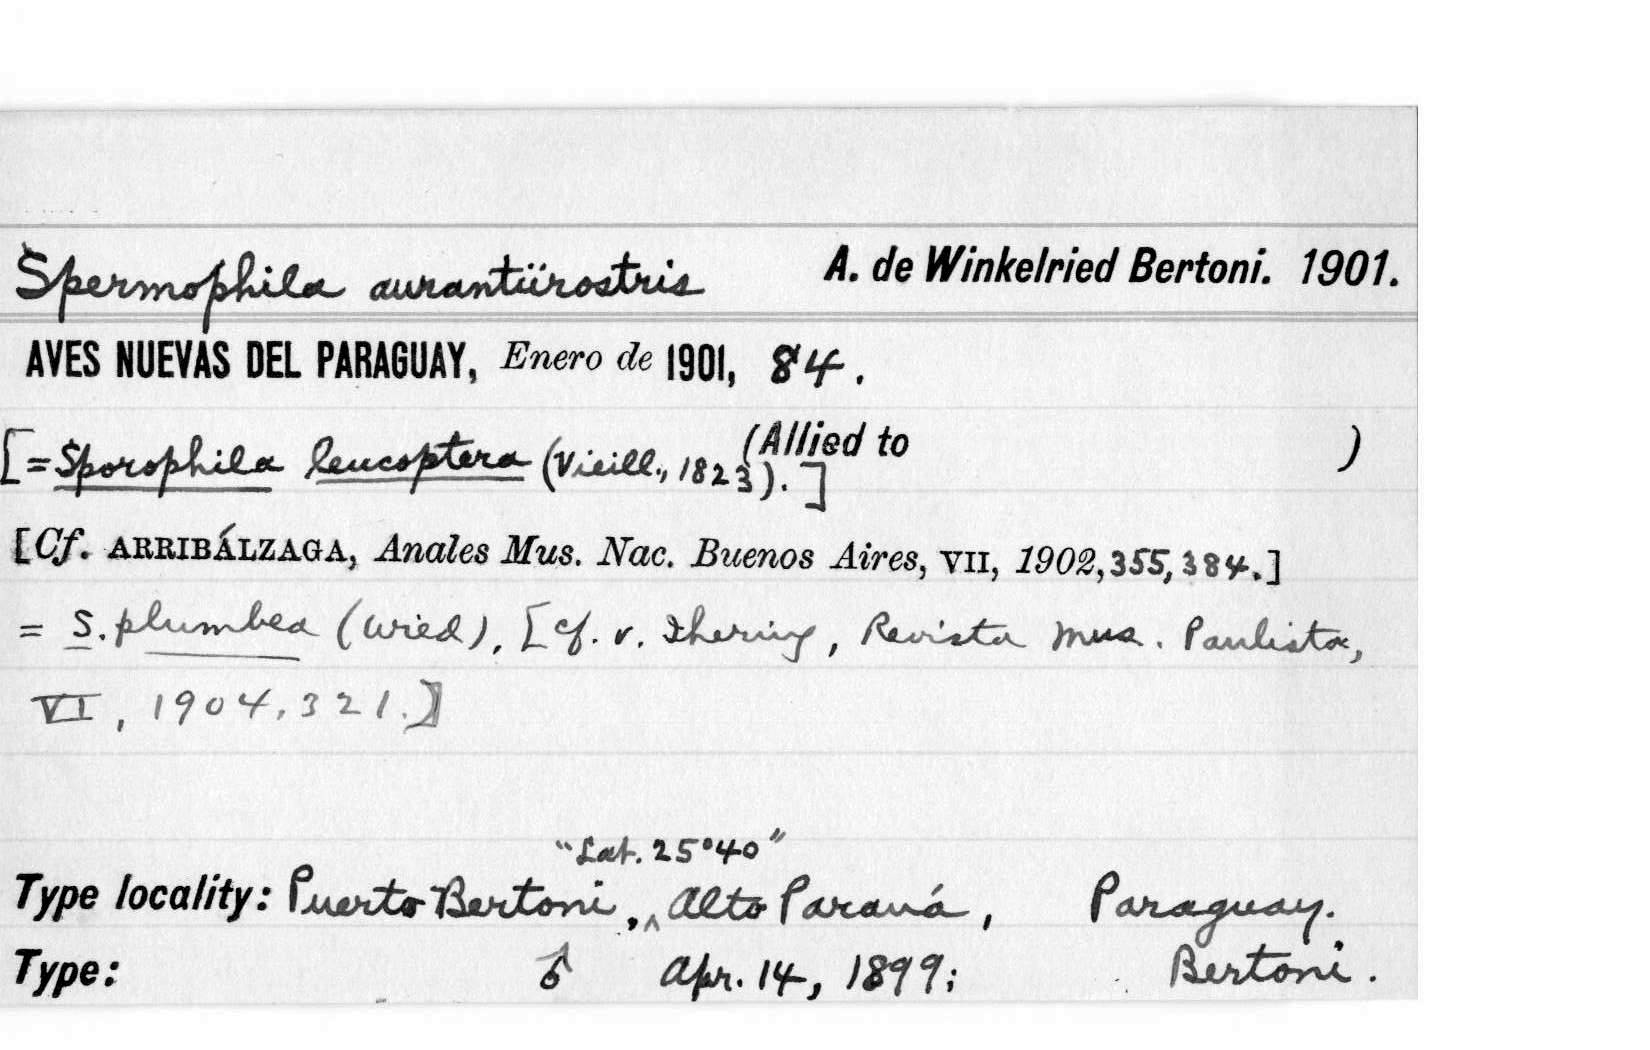 Spermophila aurantiirostris A. de Winkelried Bertoni. 1901.
AVES NUEVAS DEL PARAGUAY, Enero de 1901, 84.
(Allied to )
[=Sporophila leucoptera (Vieill., 1823).]
[Cf. ARRIBÁLZAGA, Anales Mus. Nac. Buenos Aires, VII, 1902, 355, 384.]
= S. plumbea (Wied), [Cf. v. Ihering, Revista Mus. Paulista,
VI, 1904, 321.]
"Lat. 25°40"
Type locality: Puerto Bertoni, ^ Alto Paraná, Paraguay.
Type: ♂ Apr. 14, 1899; Bertoni.